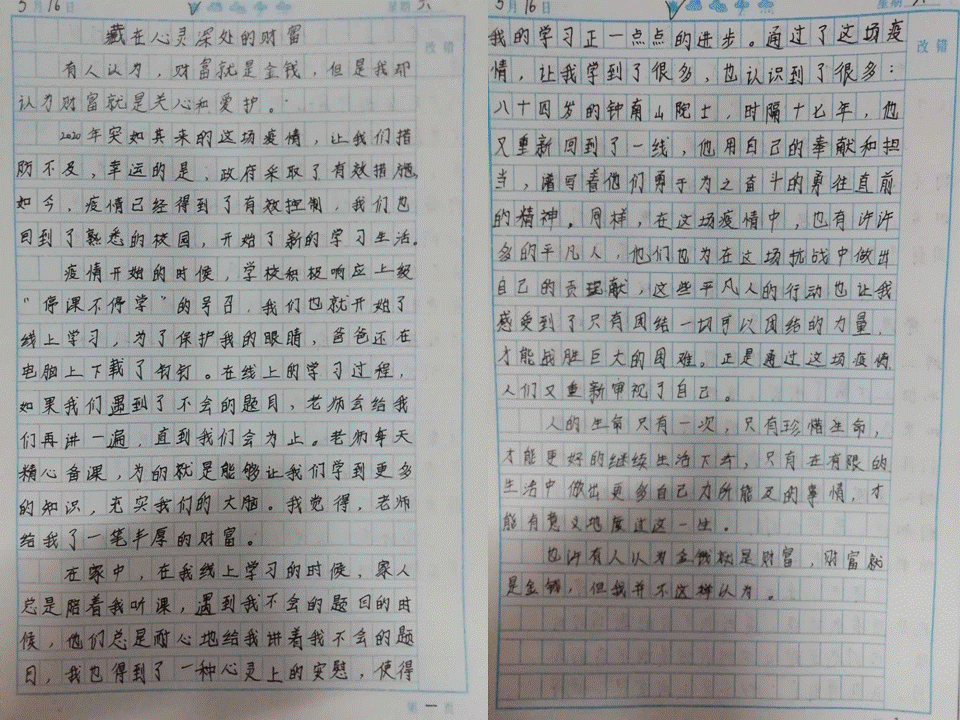 5月16日
星期六
改错
藏在心灵深处的财富
有人认为，财富就是金钱，但是我却
认为财富就是关心和爱护。
2020年突如其来的这场疫情，让我们措
防不及，幸运的是，政府采取了有效措施。
如今，疫情已经得到了有效控制，我们也
回到了熟悉的校园，开始了新的学习生活。
疫情开始的时候，学校积极响应上级
“停课不停学”的号召，我们也就开始了
线上学习，为了保护我的眼睛，爸爸还在
电脑上下载了钉钉。在线上的学习过程，
如果我们遇到了不会的题目，老师会给我
们再讲一遍，直到我们会为止。老师每天
精心备课，为的就是能够让我们学到更多
的知识，充实我们的大脑。我觉得，老师
给我了一笔丰厚的财富。
在家中，在我线上学习的时候，家人
总是陪着我听课，遇到我不会的题目的时
候，他们总是耐心地给我讲着我不会的题
目，我也得到了一种心灵上的实慰，使得
第一页
5月16日
星期六
改错
我的学习正一点点的进步。通过了这场疫
情，让我学到了很多，也认识到了很多：
八十四岁的钟南山院士，时隔十七年，他
又重新回到了一线，他用自己的奉献和担
当，谱写着他们勇于为之奋斗的勇往直前
的精神。同样，在这场疫情中，也有许许
多的平凡人，他们也为在这场抗战中做出
自己的贡献，这些平凡人的行动也让我
感受到了只有团结一切可以团结的力量，
才能战胜巨大的困难。正是通过这场疫情
人们又重新审视了自己。
人的生命只有一次，只有珍惜生命，
才能更好的继续生活下去，只有在有限的
生活中做出更多自己力所能及的事情，才
能有意义地度过这一生。
也许有人认为金钱就是财富，财富就
是金钱，但我并不这样认为。